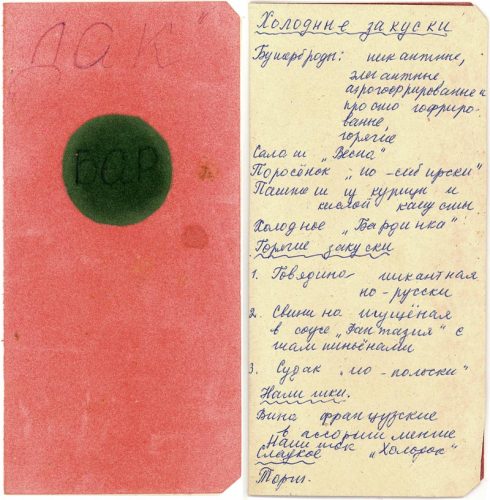 ДАК"
БАР
Холодные закуски
Бутерброды: пикантные,
элегантные
агрогофрированные и
просто гофриро-
ванные,
горячие
Салат „Весна"
Поросёнок „по-сибирски"
Паштет из курицы и
кислой капусты
Холодное „Бардинка"
Горячие закуски
1. Говядина пикантная
по-русски
2. Свинина тушёная
в соусе „Фантазия" с
шампиньёнами
3. Судак „по-польски"
Напитки.
Вина французские
в ассортименте
Напиток „Холодок"
Сладкое
Торты.